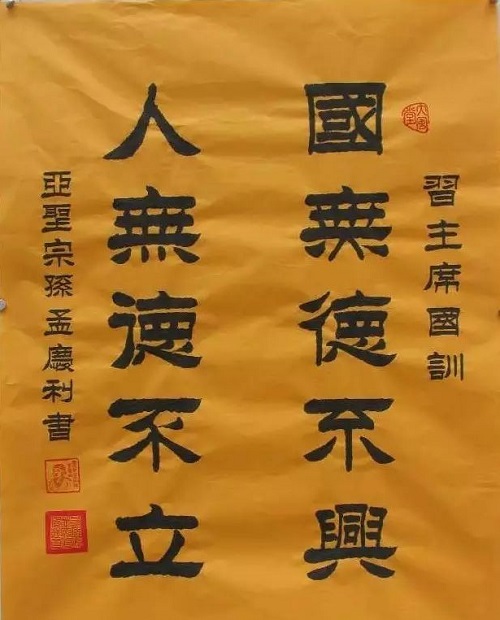 習主席國訓
國無德不興
人無德不立
亞聖宗孫孟慶利書